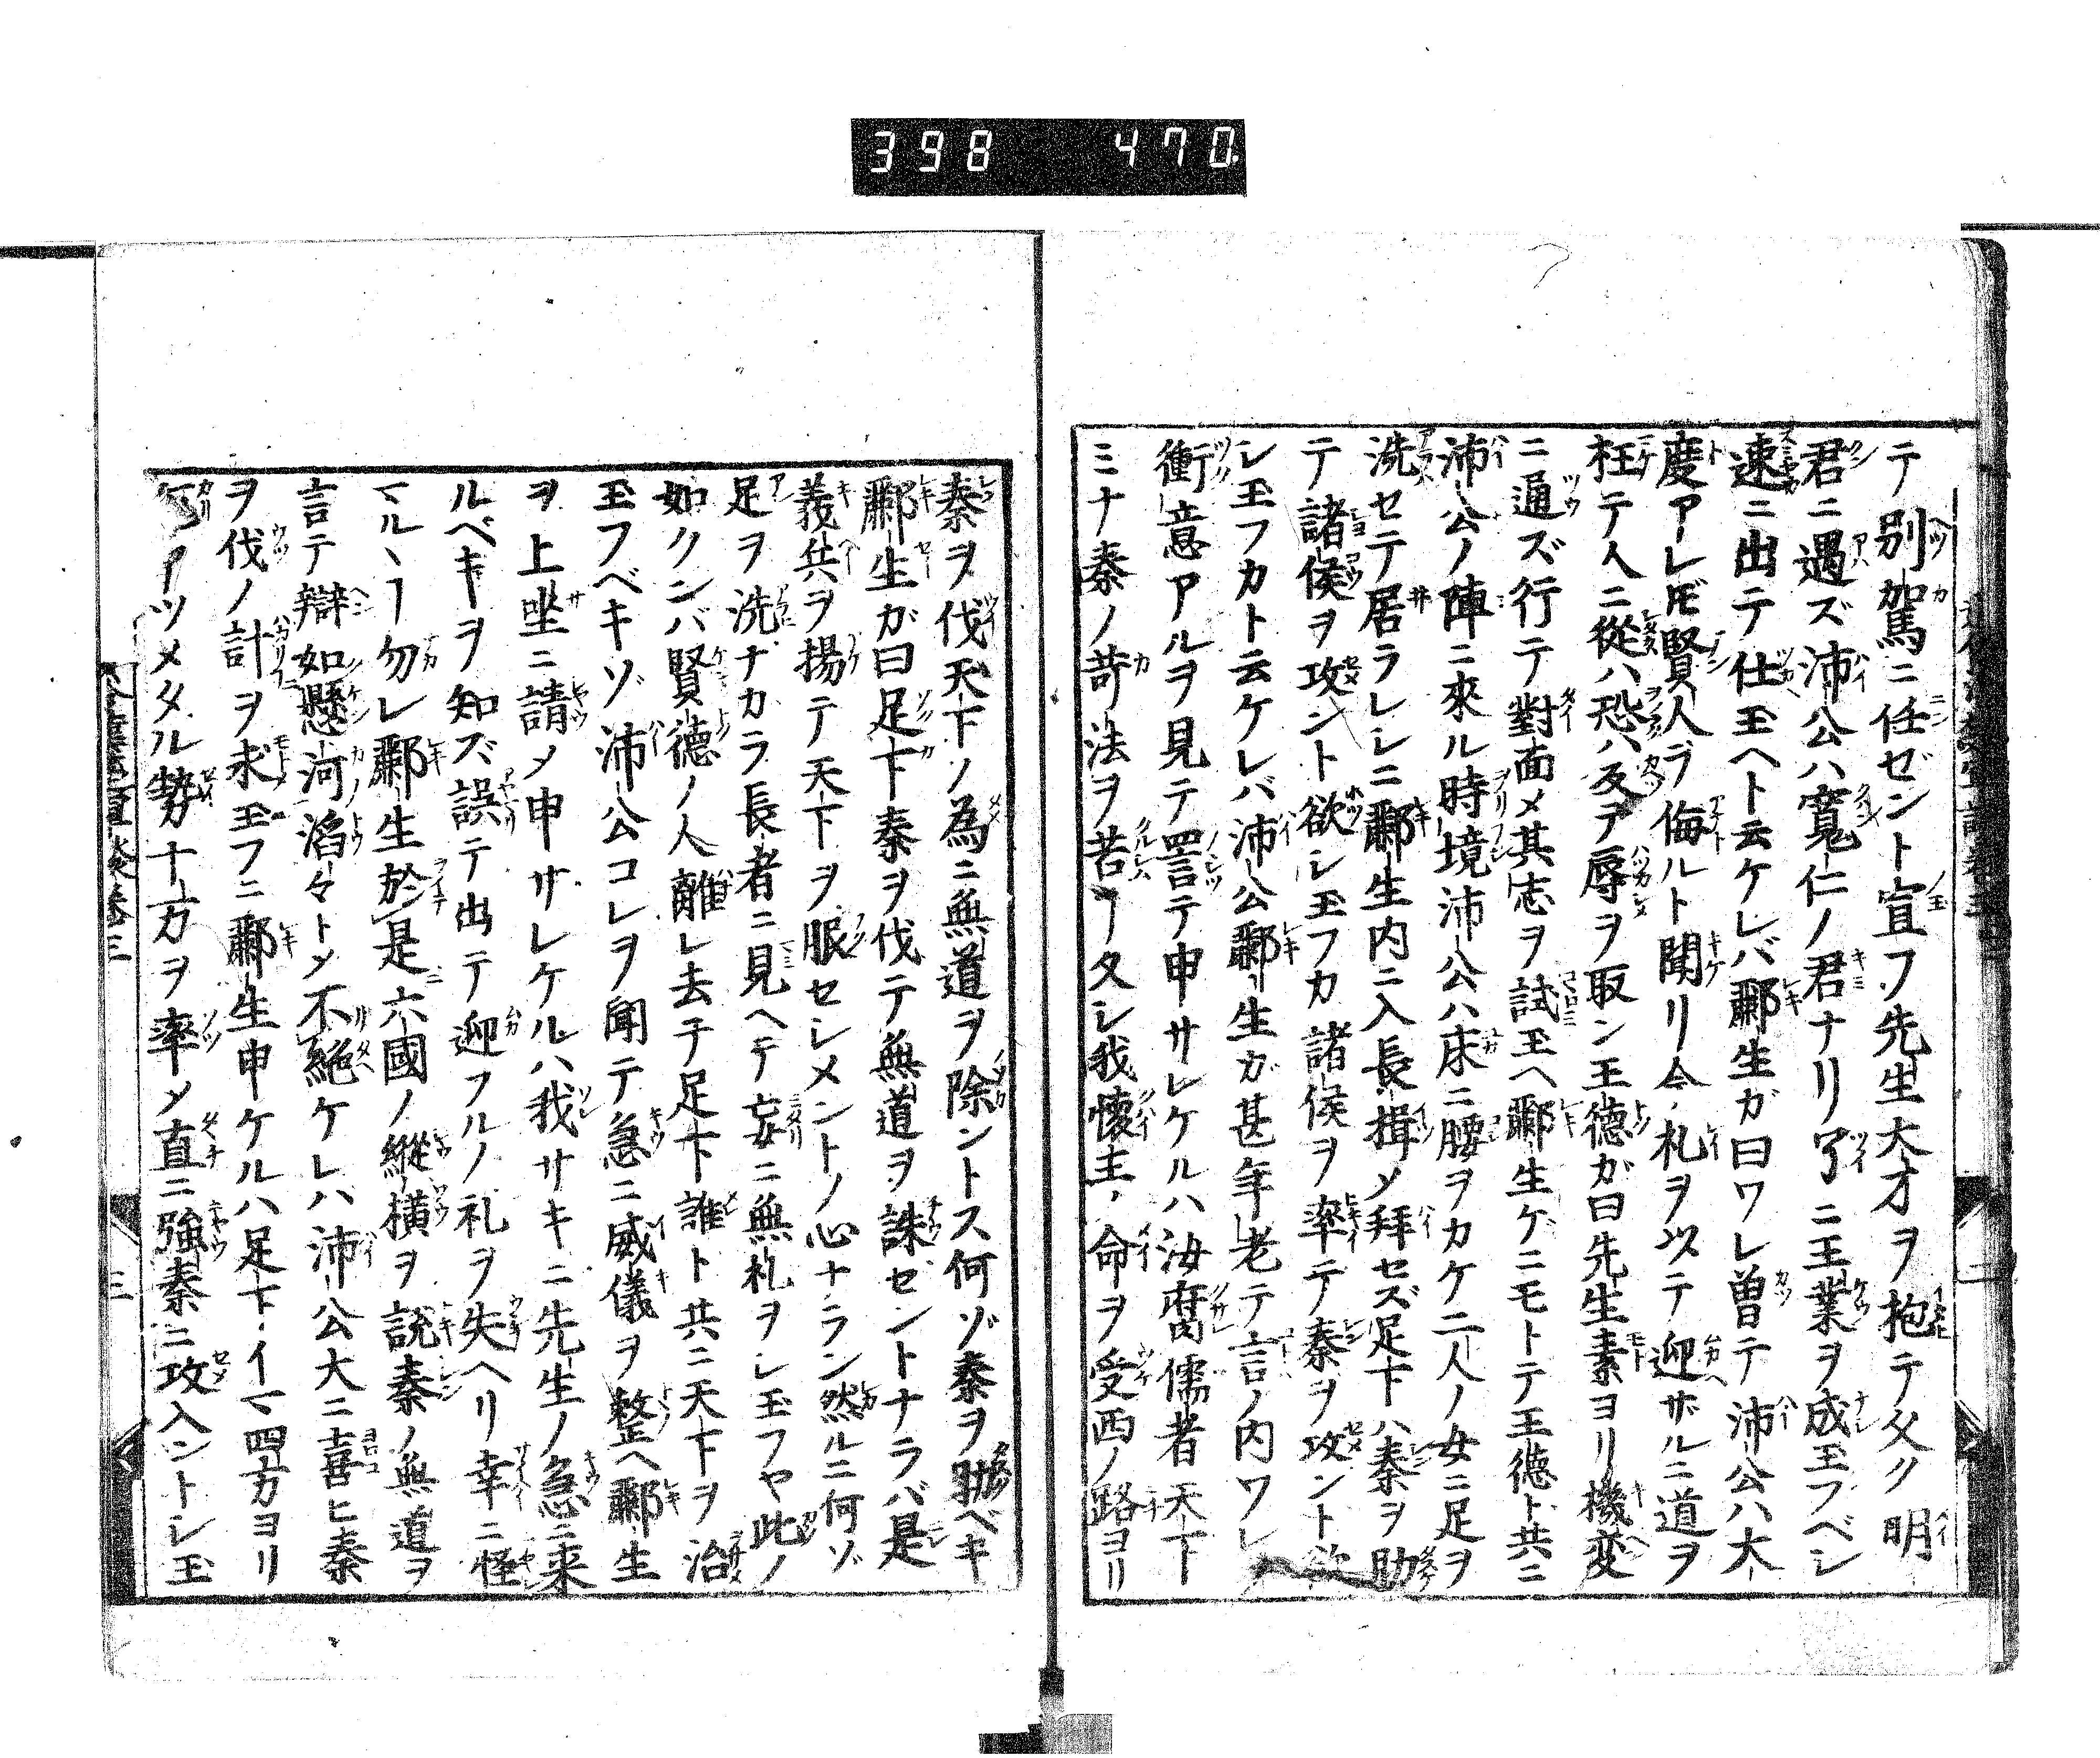 398 470
テ別駕ニ任ゼント宣フ先生大才ヲ抱テ父ク明
君ニ遇ズ沛公ハ寛仁ノ君ナリ了ニ王業ヲ成玉フベシ
速ニ出テ仕玉ヘト云ケレバ酈生ガ曰ワレ曽テ沛公ハ大
度アレ𪜈賢人ヲ侮ルト聞リ今札ヲ以テ迎ザルニ道ヲ
枉テ人ニ從ハ恐ハ反ア辱ヲ取ン王德ガ曰先生素ヨリ機変
ニ通ズ行テ對面メ其志ヲ試玉ヘ酈生ゲニモトテ王徳ト共ニ
沛公ノ陣ニ來ル時境沛公ハ床ニ腰ヲカケ二人ノ女ニ足ヲ
洗セテ居ラレシニ酈生内ニ入長揖ソ拜セズ足下ハ秦ヲ助
テ諸侯ヲ攻ント欲シ玉フカ諸侯ヲ率テ秦ヲ攻ント欲
シ玉フカト云ケレバ沛公酈生ガ甚年老テ言ノ内ワレ
衝意アルヲ見テ詈テ申サレケルハ汝腐儒者天下
ミナ秦ノ苛法ヲ苦ヿ久シ我懐王ノ命ヲ受西ノ路ヨリ
秦ヲ伐天下ノ為ニ無道ヲ除ントス何ゾ秦ヲ助ベキ
酈生ガ曰足下秦ヲ伐テ無道ヲ誅セントナラバ是
義兵ヲ揚テ天下ヲ服セシメントノ心ナラン然ルニ何ゾ
足ヲ洗ナカラ長者ニ見ヘテ妄ニ無札ヲシ玉フヤ此ノ
如クンバ賢德ノ人離レ去テ足下誰ト共ニ天下ヲ治
玉フベキゾ沛公コレヲ聞テ急ニ威儀ヲ整ヘ酈生
ヲ上坐ニ請メ申サレケルハ我サキニ先生ノ急ニ来
ルベキヲ知ズ誤テ出テ迎フルノ礼ヲ失ヘリ幸ニ怪
マルヽヿ勿レ酈生於是六國ノ縱横ヲ説秦ノ無道ヲ
言テ辯如懸河滔々トメ不絶ケレハ沛公大ニ喜ヒ秦
ヲ伐ノ計ヲ求玉フニ酈生申ケルハ足下イマ四方ヨリ
アツメタル勢十万ヲ率メ直ニ強秦ニ攻入ントシ玉
三